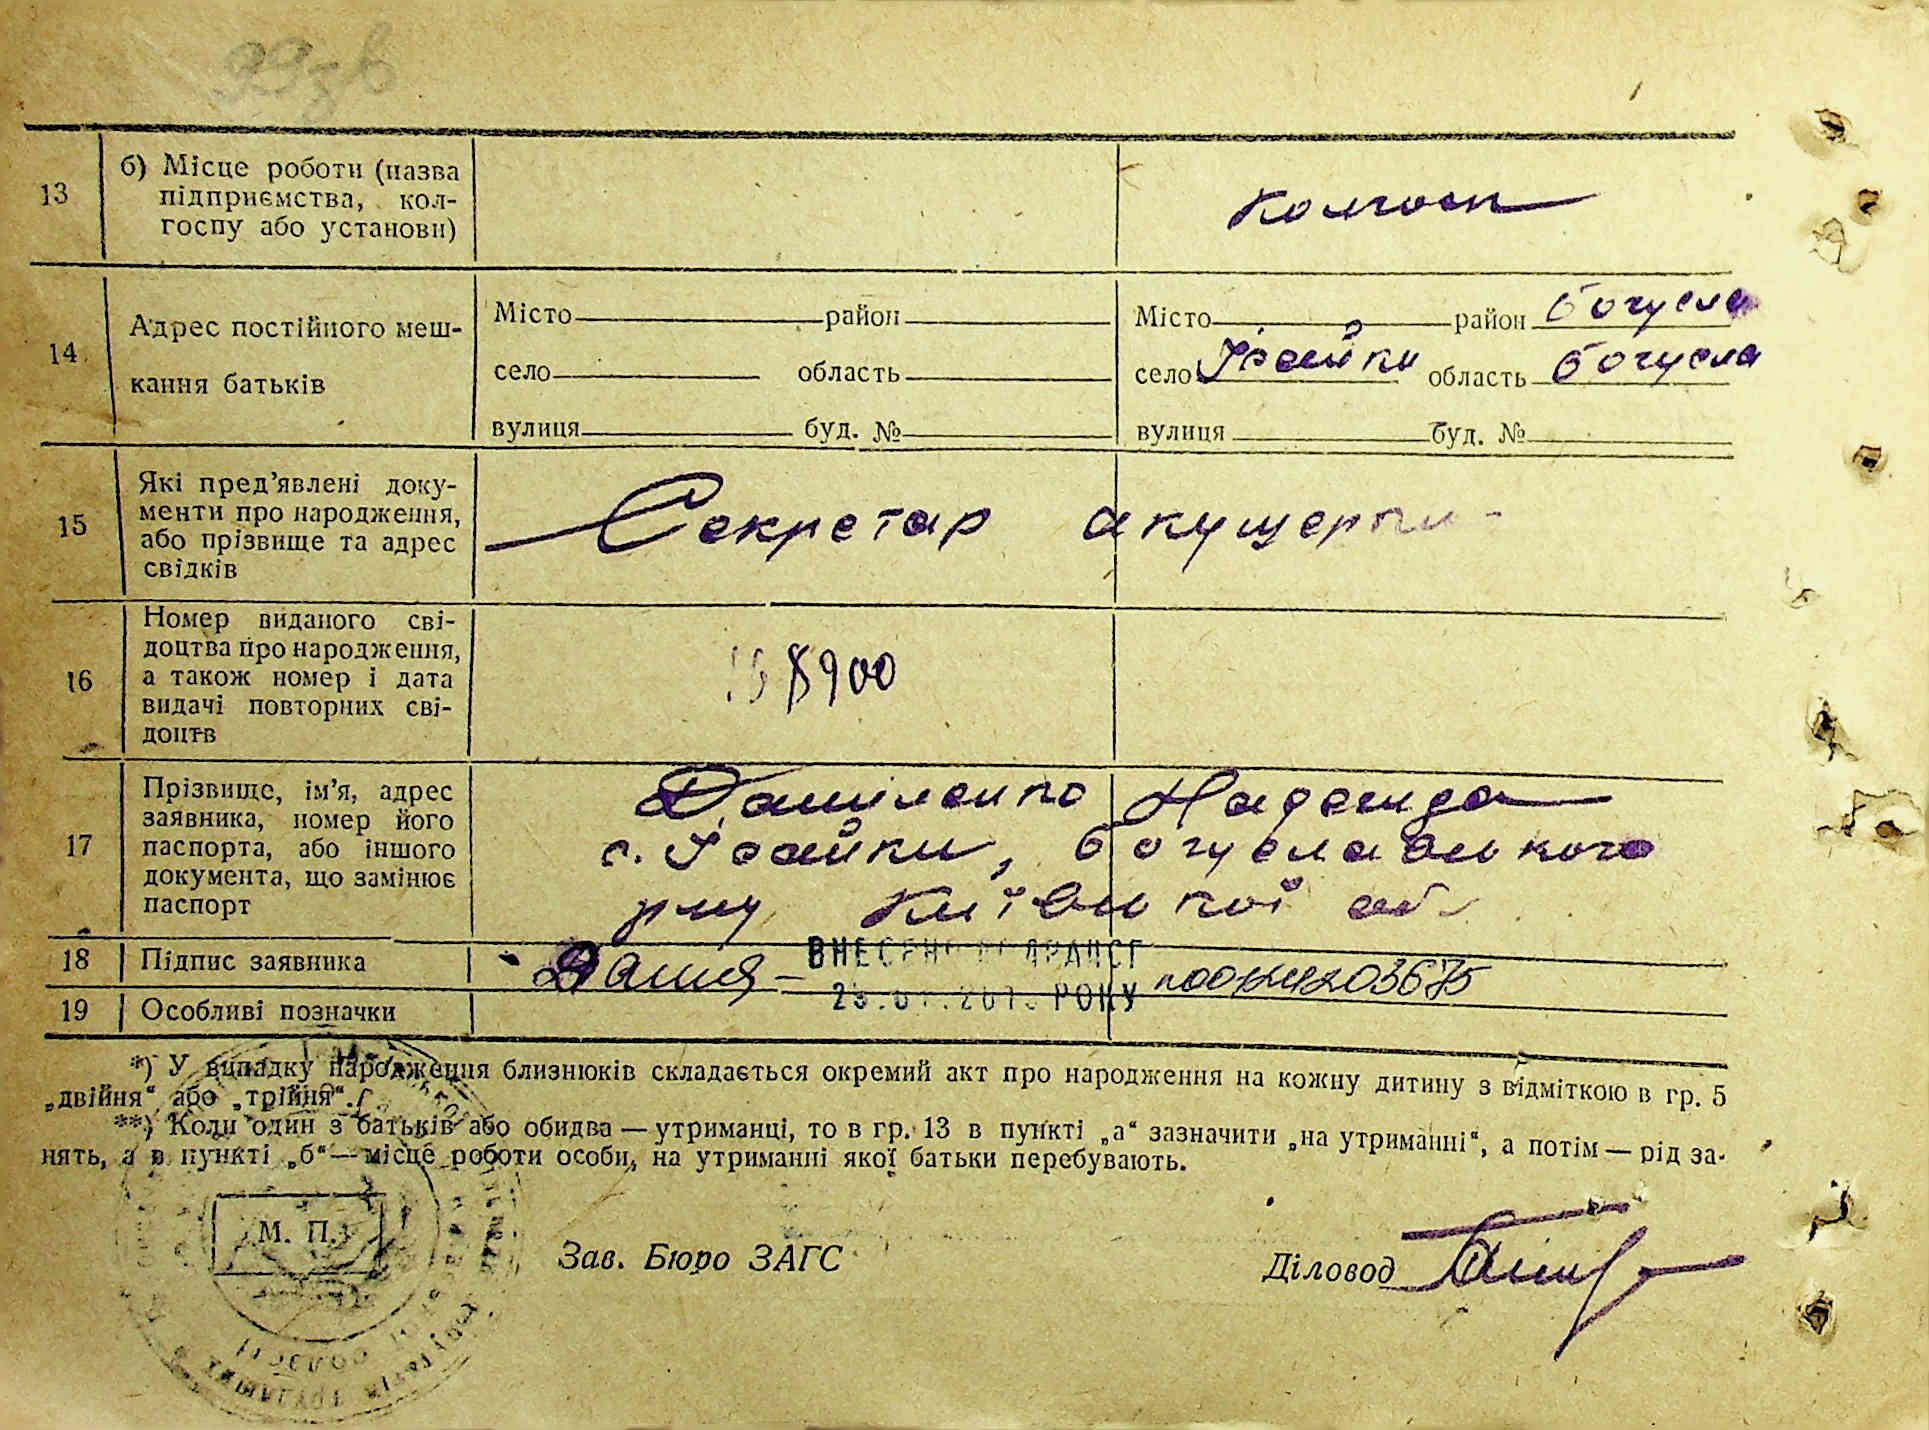 99зв
13 б) Місце роботи (назва підприємства, кол-
госпу або установи)
колгосп
14 Адрес постійного меш-
кання батьків
Місто район
село область
вулиця буд. №
Місто район Богусла
село Ісайки область Богусла
вулиця буд. №
15 Які пред’явлені доку-
менти про народження,
або прізвище та адрес
свідків
Секретар акушерки
16 Номер виданого сві-
доцтва про народження,
а також номер і дата
видачі повторних сві-
доцтв
8900
17 Прізвище, ім’я, адрес
заявника, номер його
паспорта, або іншого
документа, що замінює
паспорт
Даніленко Надежда
с. Ісайки, Богуславського
р-ну Київської об
18 Підпис заявника
ВНЕСЕНО ДО ДРАЦСГ
19 Особливі позначки
РОКУ
*) У випадку народження близнюків складається окремий акт про народження на кожну дитину з відміткою в гр. 5
„двійня“ або „трійня“.
**) Коли один з батьків або обидва — утриманці, то в гр. 13 в пункті „а“ зазначити „на утриманні“, а потім — рід за-
нять, а в пункті „б“ — місце роботи особи, на утриманні якої батьки перебувають.
М. П.
Зав. Бюро ЗАГС
Діловод